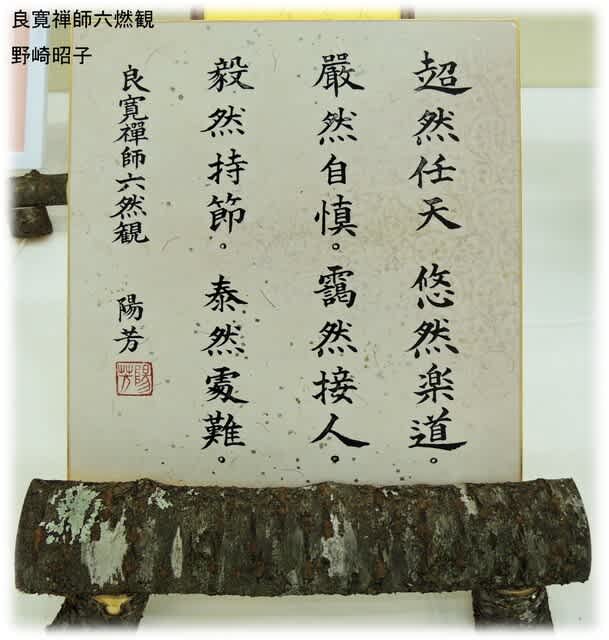 良寛禅師六燃観
野崎昭子
超然任天 悠然楽道。
嚴然自慎。靄然接人。
毅然持節。泰然處難。
良寛禪師六然観 陽芳
陽芳